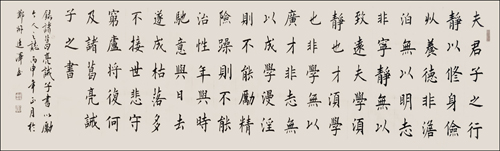 夫君子之行
靜以修身儉
以養德非澹
泊無以明志
非寧靜無以
致遠夫學須
靜也才須學
也非學無以
廣才非志無
以成學漫淫
則不能勵精
險躁則不能
治性年與時
馳意與日去
遂成枯落多
不接世悲守
窮廬將復何
及諸葛亮誡
子之書
錄諸葛亮誡子書以勵
今人之志丙申年正月於
鄭州